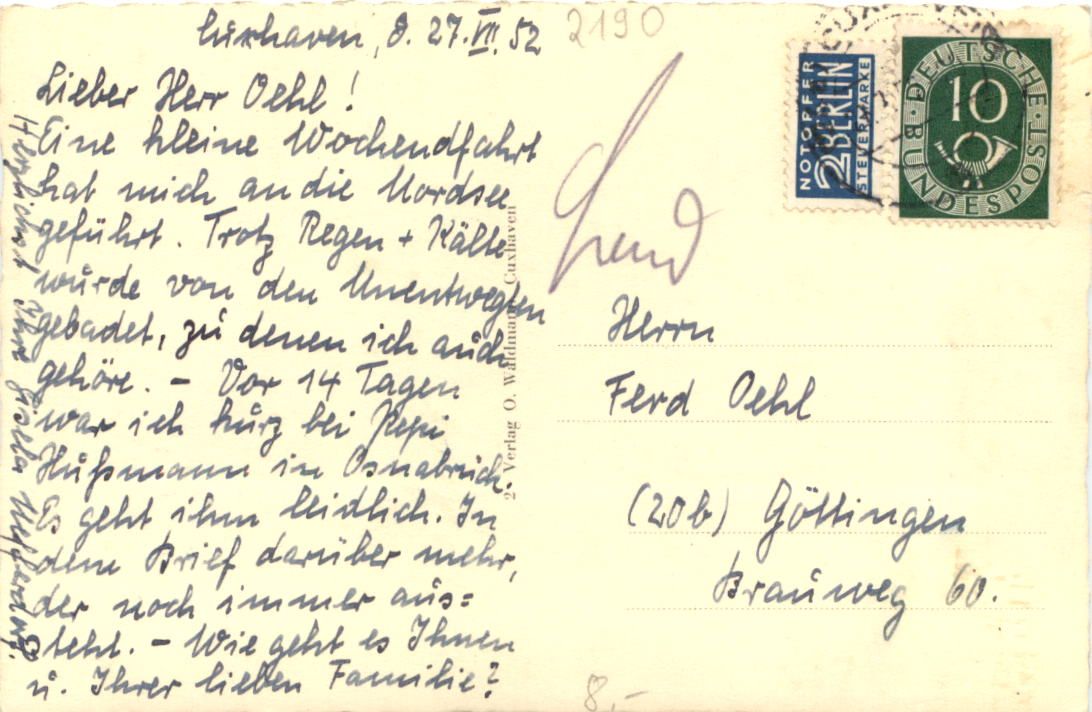 Cuxhaven, d. 27.VII.52
Lieber Herr Oehl!
Eine kleine Wochendfahrt
hat mich an die Nordsee
geführt. Trotz Regen + Kälte
wurde von den Unentwegten
gebadet, zu denen ich auch
gehöre. – Vor 14 Tagen
war ich kurz bei Pepi
Hußmann in Osnabrück.
Es geht ihm leidlich. In
dem Brief darüber mehr,
der noch immer aus=
steht. – Wie geht es Ihnen
u. Ihrer lieben Familie?
Herzlichst Ihre Gisela
2190
NOTOPFER
2 BERLIN
STEUERMARKE
DEUTSCHE
10
BUNDESPOST
Verlag O. Waldmann, Cuxhaven
Herrn
Ferd Oehl
(20b) Göttingen
Brauweg 60.
8,-